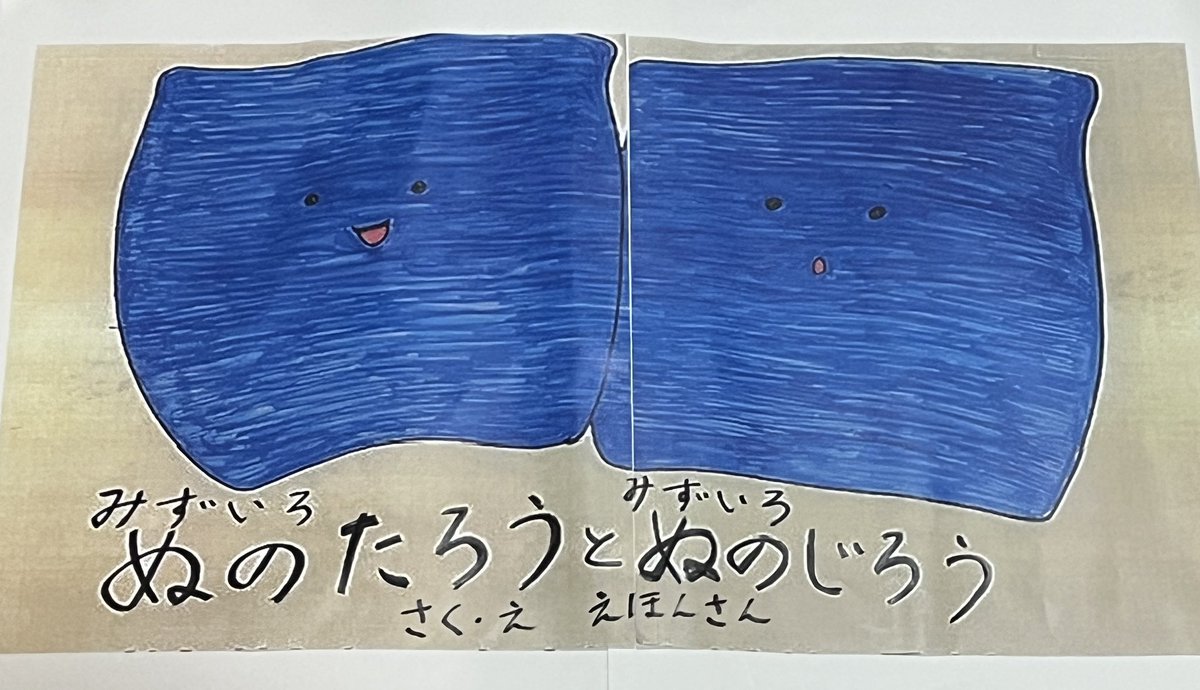 みずいろ みずいろ
ぬのたろうとぬのじろう
さく・え えほんさん